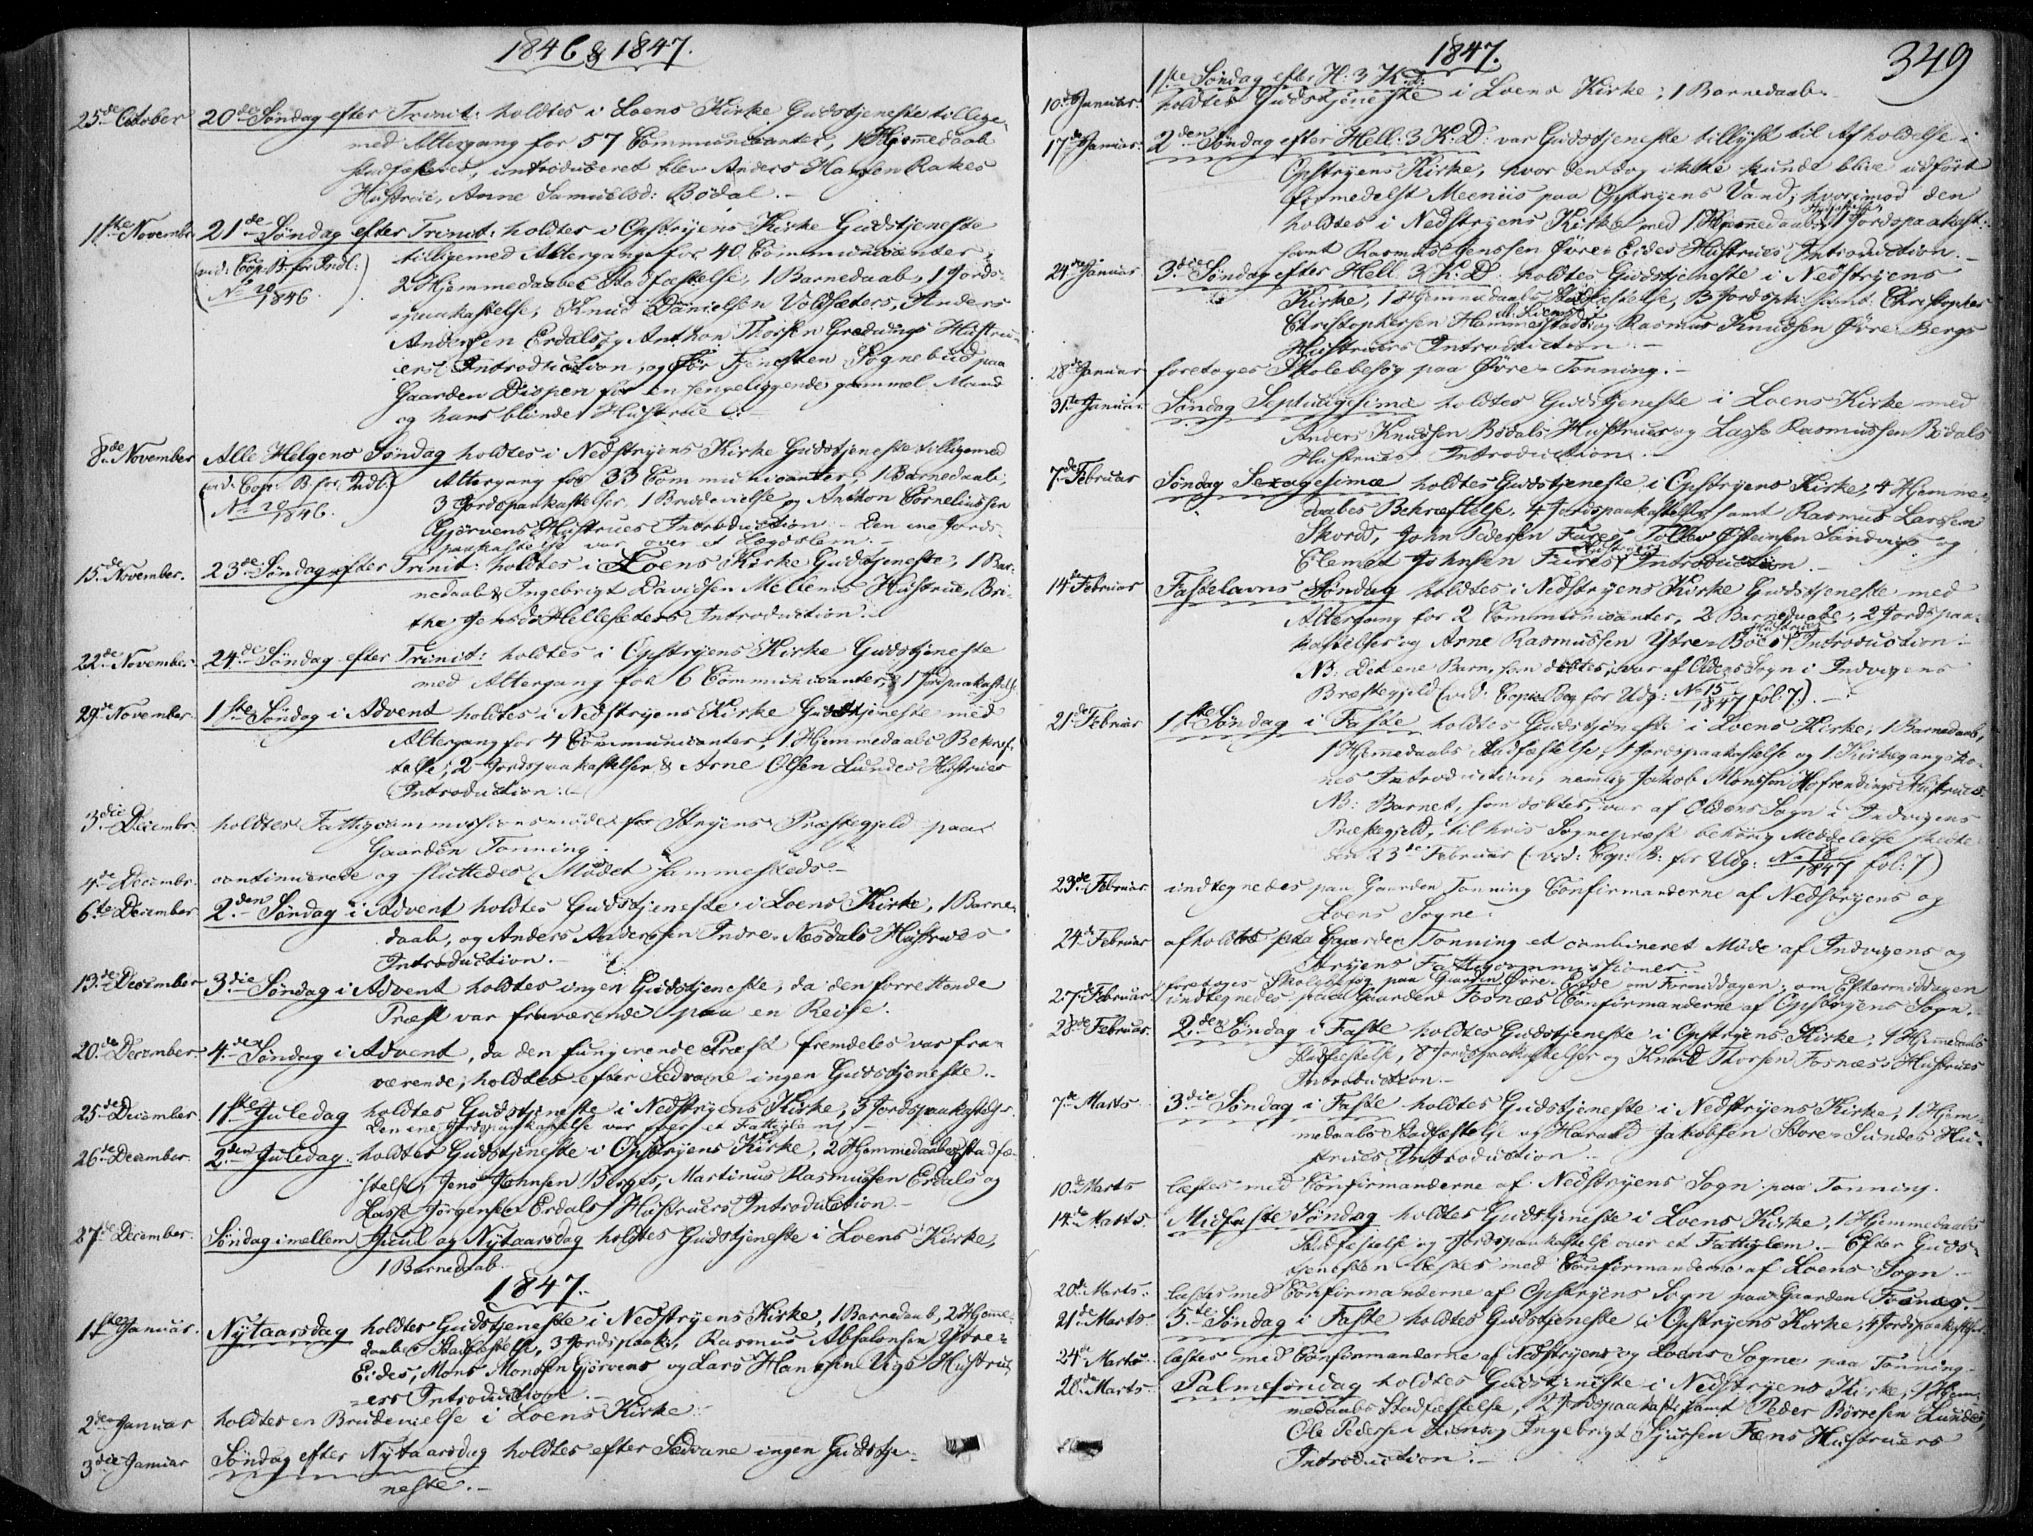 1846 & 1847.
25de October 20de Søndag efter Trinit: holdtes i Loens Kirke Gudstjeneste tillige-
med Altergang for 57 Communicanter, 1 Hjemmedaab
stadfæsted, introduceret blev Anders Hansen Rakes
Hustrue, Anne Samuelsd: Bödal.-
1ste November 21de Søndag efter Trinit: holdtes i Opstryens Kirke Gudstjeneste
(vid: Cop: B. for Indl: tilligemed Altergang for 40 Communicanter,
No 20/1846.) 2 Hjemmedaabes Stadfæstelse, 1 Barnedaab, 1 Jords-
paakastelse, Knud Danielsen Voldsæters, Anders
Andersen Erdals og Anthon Thorsen Grødings Hustru-
ers Introduction, og før Tjenesten Sognebud paa
Gaarden Dispen for en sengeliggende gammel Mand
og hans blinde Hustrue.-
8de November Alle Helgens Søndag holdtes i Nedstryens Kirke Gudstjeneste tilligemed
(vid: Cop: B. for Indl: Altergang for 33 Communicanter, 1 Barnedaab,
No 20/1846.) 3 Jordspaakastelser, 1 Brudevielse og Anthon Corneliussen
Gjørvens Hustrues Introduction.- Den ene Jords-
paakastelse var over et Lægdslem.-
15de November. 23de Søndag efter Trinit: holdtes i Loens Kirke Gudstjeneste, 1 Bar-
nedaab & Ingebrigt Davidsen Melhems Hustrue, Bri-
the Jensd: Hellesæters Introduction.-
22de November. 24de Søndag efter Trinit: holdtes i Opstryens Kirke Gudstjeneste
med Altergang for 6 Communicanter, & 1 Jordspaakastelse.
29de November. 1ste Søndag i Advent holdtes i Nedstryens Kirke Gudstjeneste med
Altergang for 4 Communicanter, 1 Hjemmedaabs Bekræf-
telse, 2 Jordspaakastelser & Arne Olsen Lundes Hustrues
Introduction.-
3die Decembr. holdtes Fattigcommissionsmøde for Stryens Præstegjeld paa
Gaarden Tonning.
4de Decembr. continuerede og sluttedes Mødet sammesteds.-
6te December 2den Søndag i Advent holdtes Gudstjeneste i Loens Kirke, 1 Barne-
daab, og Anders Andersen Indre-Næsdals Hustrues
Introduction.-
13de December 3die Søndag i Advent holdtes ingen Gudstjeneste, da den forrettende
Præst var fraværende paa en Reise.
20de December 4den Søndag i Advent, da den fungerende Præst fremdeles var fra-
værende, holdtes efter Sædvane ingen Gudstjeneste.-
25de December. 1ste Juledag holdtes Gudstjeneste i Nedstryens Kirke, 3 Jordspaakastelser.
Den ene Jordspaakastelse var over et Fattiglem.-
26de December. 2den Juledag. holdtes Gudstjeneste i Opstryens Kirke, 2 Hjemmedaabes Stadfæ-
stelse, Jens Johnsen Bergs, Martinus Rasmussen Erdals og
Lasse Jörgensen Erdals Hustruers Introduction.-
27de December. Søndag imellem Juul og Nytaarsdag holdtes Gudstjeneste i Loens Kirke,
1 Barnedaab.
1847.
1ste Januar. Nytaarsdag holdtes Gudstjeneste i Nedstryens Kirke, 1 Barnedaab, 2 Hjemme-
daabes Stadfæstelse, 3 Jordspaak:, Rasmus Absalonsen Ytre-
Eides, Mons Monsen Gjørvens og Lars Hansen Vigs Hustru-
ers Introduction.-
2den Januar holdtes en Brudevielse i Loens Kirke.
3die Januar Søndag efter Nytaarsdag holdtes efter Sædvane ingen Gudstje-
neste.-
1847. 349
1ste Søndag efter H: 3 K: d:
10de Januar. holdtes Gudstjeneste i Loens Kirke, 1 Barnedaab.-
17de Januar. 2den Søndag efter Hell: 3 K: D: var Gudstjeneste tillyst til Afholdelse i
Opstryens Kirke, hvor den dog ikke kunde blive udført
formedelst Meeniis paa Opstryens Vand, hvorimod den
holdtes i Nedstryens Kirke med 1 Hjemmedaabs Stadfæstelse, 1 Jordspaakast:
samt Rasmus Jenssen Øvre-Eides Hustrues Introduction.-
24de Januar 3die Søndag efter Hell. 3 K: D. holdtes Gudstjeneste i Nedstryens
Kirke, 1 Hjemmedaabs Stadfæstelse, 3 Jordspk: samt Christopher
Christophersen Hammerstads og Rasmus Knudsen Øvre-Bergs
Hustruers Introduction.-
28de Januar foretoges Skolebesøg paa Øvre-Tonning.-
31te Januar. Søndag Septuagesimæ holdtes Gudstjeneste i Loens Kirke med
Anders Knudsen Bødals Hustrues og Lasse Rasmussen Bødals
Hustrues Introduction.-
7de Februar Søndag Sexagesimæ holdtes Gudstjeneste i Opstryens Kirke, 4 Hjemme-
daabes Bekræftelse, 4 Jordspaakastelser samt Rasmus Larssen
Skords, John Pedersen Fures, Tollev Østensen Sandvigs og
Clemet Johnsen Fures Hustruers Introduction.-
14de Februar Fastelavns Søndag holdtes i Nedstryens Kirke Gudstjeneste med
Altergang for 2 Communicanter, 2 Barnedaabe, 2 Jordspaa-
kastelser og Arne Rasmussen Ytre-Böes Hustrues Introduction.-
NB. Det ene Barn, som döbtes, var af Oldens Sogn i Indvigens
Præstegjeld (vid: Copie Bog for Udg: No 15/1847 fol: 7.).-
21de Februar 1ste Søndag i Faste holdtes Gudstjeneste i Loens Kirke, 1 Barnedaab,
1 Hjemmedaabs Stadfæstelse, 1 Jordspaakastelse og 1 Kirkegangsko-
nes Introduction, nemlig Jakob Monssen Hofrendings Hustrues.
NB: Barnet, som döbtes, var af Oldens Sogn i Indvigens
Præstegjeld, til hvis Sognepræst behörig Meddelelse skedte
den 23de Februar (vid: Cop: B: for Udg: No 18/1847 fol: 7)
23de Februar indtegnedes paa Gaarden Tonning Confirmanderne af Nedstryens og
Loens Sogne.
24de Februar afholdtes paa Gaarden Tonning et combineret Møde af Indvigens og
Stryens Fattigcommissioner.
foretoges Skolebesøg paa Gaarden Øvre-Eide om Formiddagen; om Eftermiddagen
27de Februar indtegnedes paa Gaarden Fosnæs Confirmanderne af Opstryens Sogn.
28de Februar. 2den Søndag i Faste holdtes Gudstjeneste i Opstryens Kirke, 1 Hjemmedaabs
Stadfæstelse, 8 Jordspaakastelser og Knud Thorsen Fosnæs Hustrues
Introduction.-
7de Marts 3die Søndag i Faste holdtes Gudstjeneste i Nedstryens Kirke, 1 Hjem-
medaabs Stadfæstelse og Harald Jakobsen Store-Sundes Hu-
strues Introduction.-
10de Marts læstes med Confirmanderne af Nedstryens Sogn paa Tonning.
14de Marts. Midfaste Søndag holdtes Gudstjeneste i Loens Kirke, 1 Hjemmedaabs
Stadfæstelse og 1 Jordspaakastelse over et Fattiglem.- Efter Guds-
tjenesten læstes med Confirmanderne af Loens Sogn.-
20de Marts. læstes med Confirmanderne af Opstryens Sogn paa Gaarden Fosnæs.-
21de Marts 5te Søndag i Faste holdtes Gudstjeneste i Opstryens Kirke, 4 Jordspaakastelser.
24de Marts. læstes med Confirmanderne af Nedstryens og Loens Sogne paa Tonning.-
28de Marts. Palmesøndag holdtes Gudstjeneste i Nedstryens Kirke, 1 Hjem-
medaabs Stadfæstelse, 2 Jordspaakast: samt Peder Börresen Lundes,
Ole Pedersen Liens og Ingebrigt Sjursen Fæns Hustruers
Introduction.-